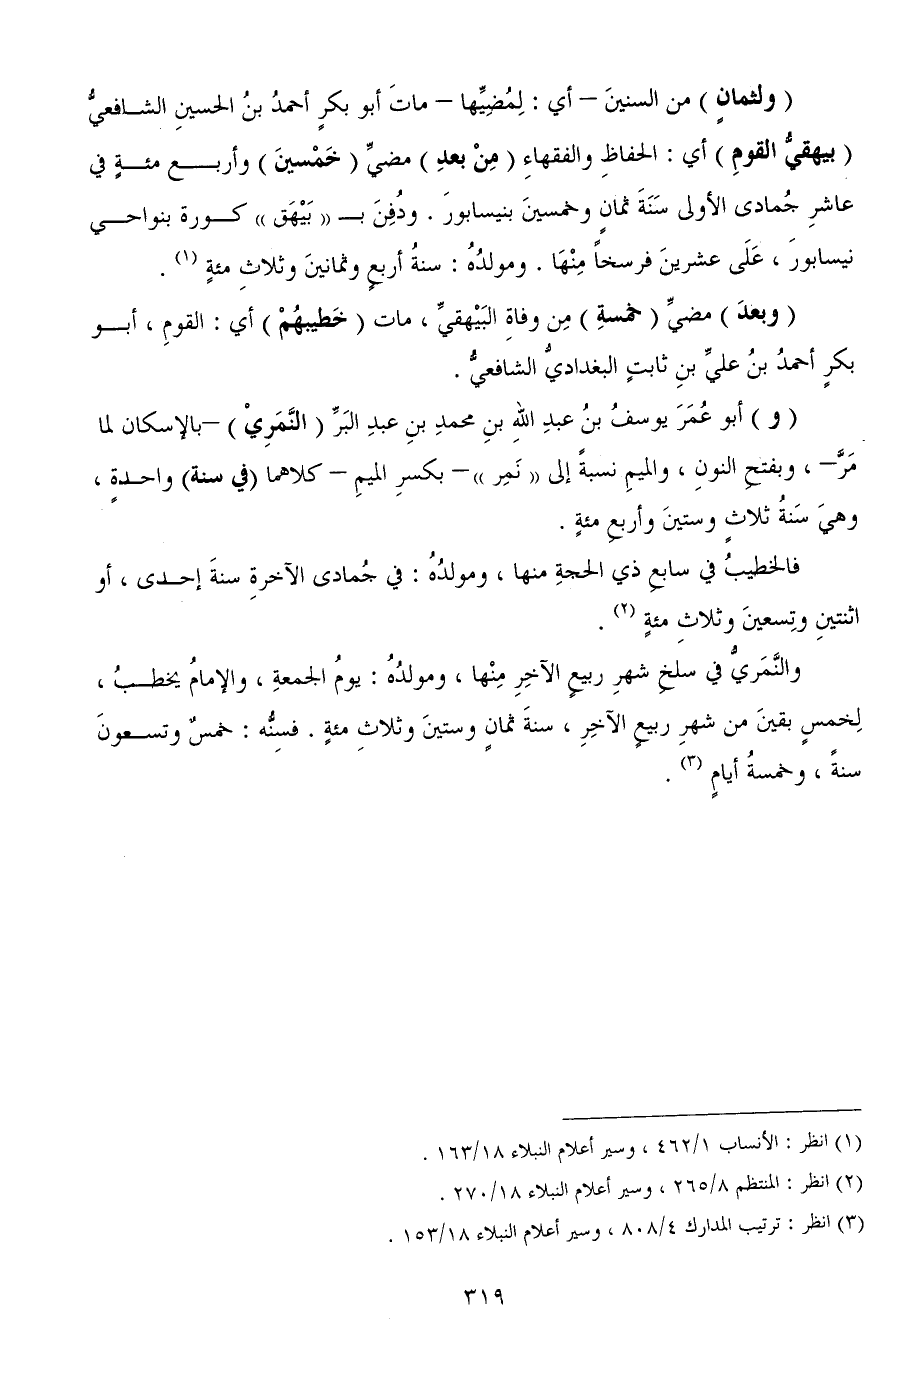 ( ولثمانٍ ) من السنينَ – أي : لِمُضِيِّها – ماتَ أبو بكرٍ أحمدُ بنُ الحسينِ الشافعيُّ
( بيهقيُّ القومِ ) أي : الحفاظِ والفقهاءِ ( مِنْ بعدِ ) مضيِّ ( خَمْسينَ ) وأربع مئةٍ في
عاشرِ جُمادى الأولى سَنَةَ ثمانٍ وخمسينَ بنيسابورَ . ودُفِنَ بـ « بَيْهَق » كورة بنواحي
نيسابورَ ، عَلَى عشرينَ فرسخاً مِنْهَا . ومولدُهُ : سنةُ أربعٍ وثمانينَ وثلاثِ مئةٍ (١) .
( وبعدَ ) مضيِّ ( خمسةِ ) مِن وفاةِ البَيْهقيِّ ، مات ( خَطيبهُمْ ) أي : القومِ ، أبو
بكرٍ أحمدُ بنُ عليِّ بنِ ثابتٍ البغداديُّ الشافعيُّ .
( و ) أبو عُمَرَ يوسفُ بنُ عبدِ اللهِ بنِ محمدِ بنِ عبدِ البَرِّ ( النَّمَرِيْ ) –بالإسكان لما
مَرَّ– ، وبفتحِ النون ، والميمِ نسبةً إلى « نَمِر »– بكسرِ الميمِ – كلاهما (في سنة) واحدةٍ ،
وهيَ سَنةُ ثلاثٍ وستينَ وأربعِ مئةٍ .
فالخطيبُ في سابعِ ذي الحجةِ منها ، ومولدُهُ : في جُمادى الآخرةِ سنةَ إحدى ، أو
اثنتينِ وتِسعينَ وثلاثِ مئةٍ (٢) .
والنَّمَريُّ في سلخِ شهرِ ربيعٍ الآخرِ مِنْها ، ومولدُهُ : يومُ الجمعةِ ، والإمامُ يخطبُ ،
لِخمسٍ بقينَ من شهرِ ربيعٍ الآخرِ ، سنةَ ثمانٍ وستينَ وثلاثِ مئةٍ . فسِنُّه : خمسٌ وتسعونَ
سنةً ، وخمسةُ أيامٍ (٣) .
(١) انظر : الأنساب ٤٦٢/١ ، وسير أعلام النبلاء ١٦٣/١٨ .
(٢) انظر : المنتظم ٢٦٥/٨ ، وسير أعلام النبلاء ٢٧٠/١٨ .
(٣) انظر : ترتيب المدارك ٨٠٨/٤ ، وسير أعلام النبلاء ١٥٣/١٨ .
٣١٩